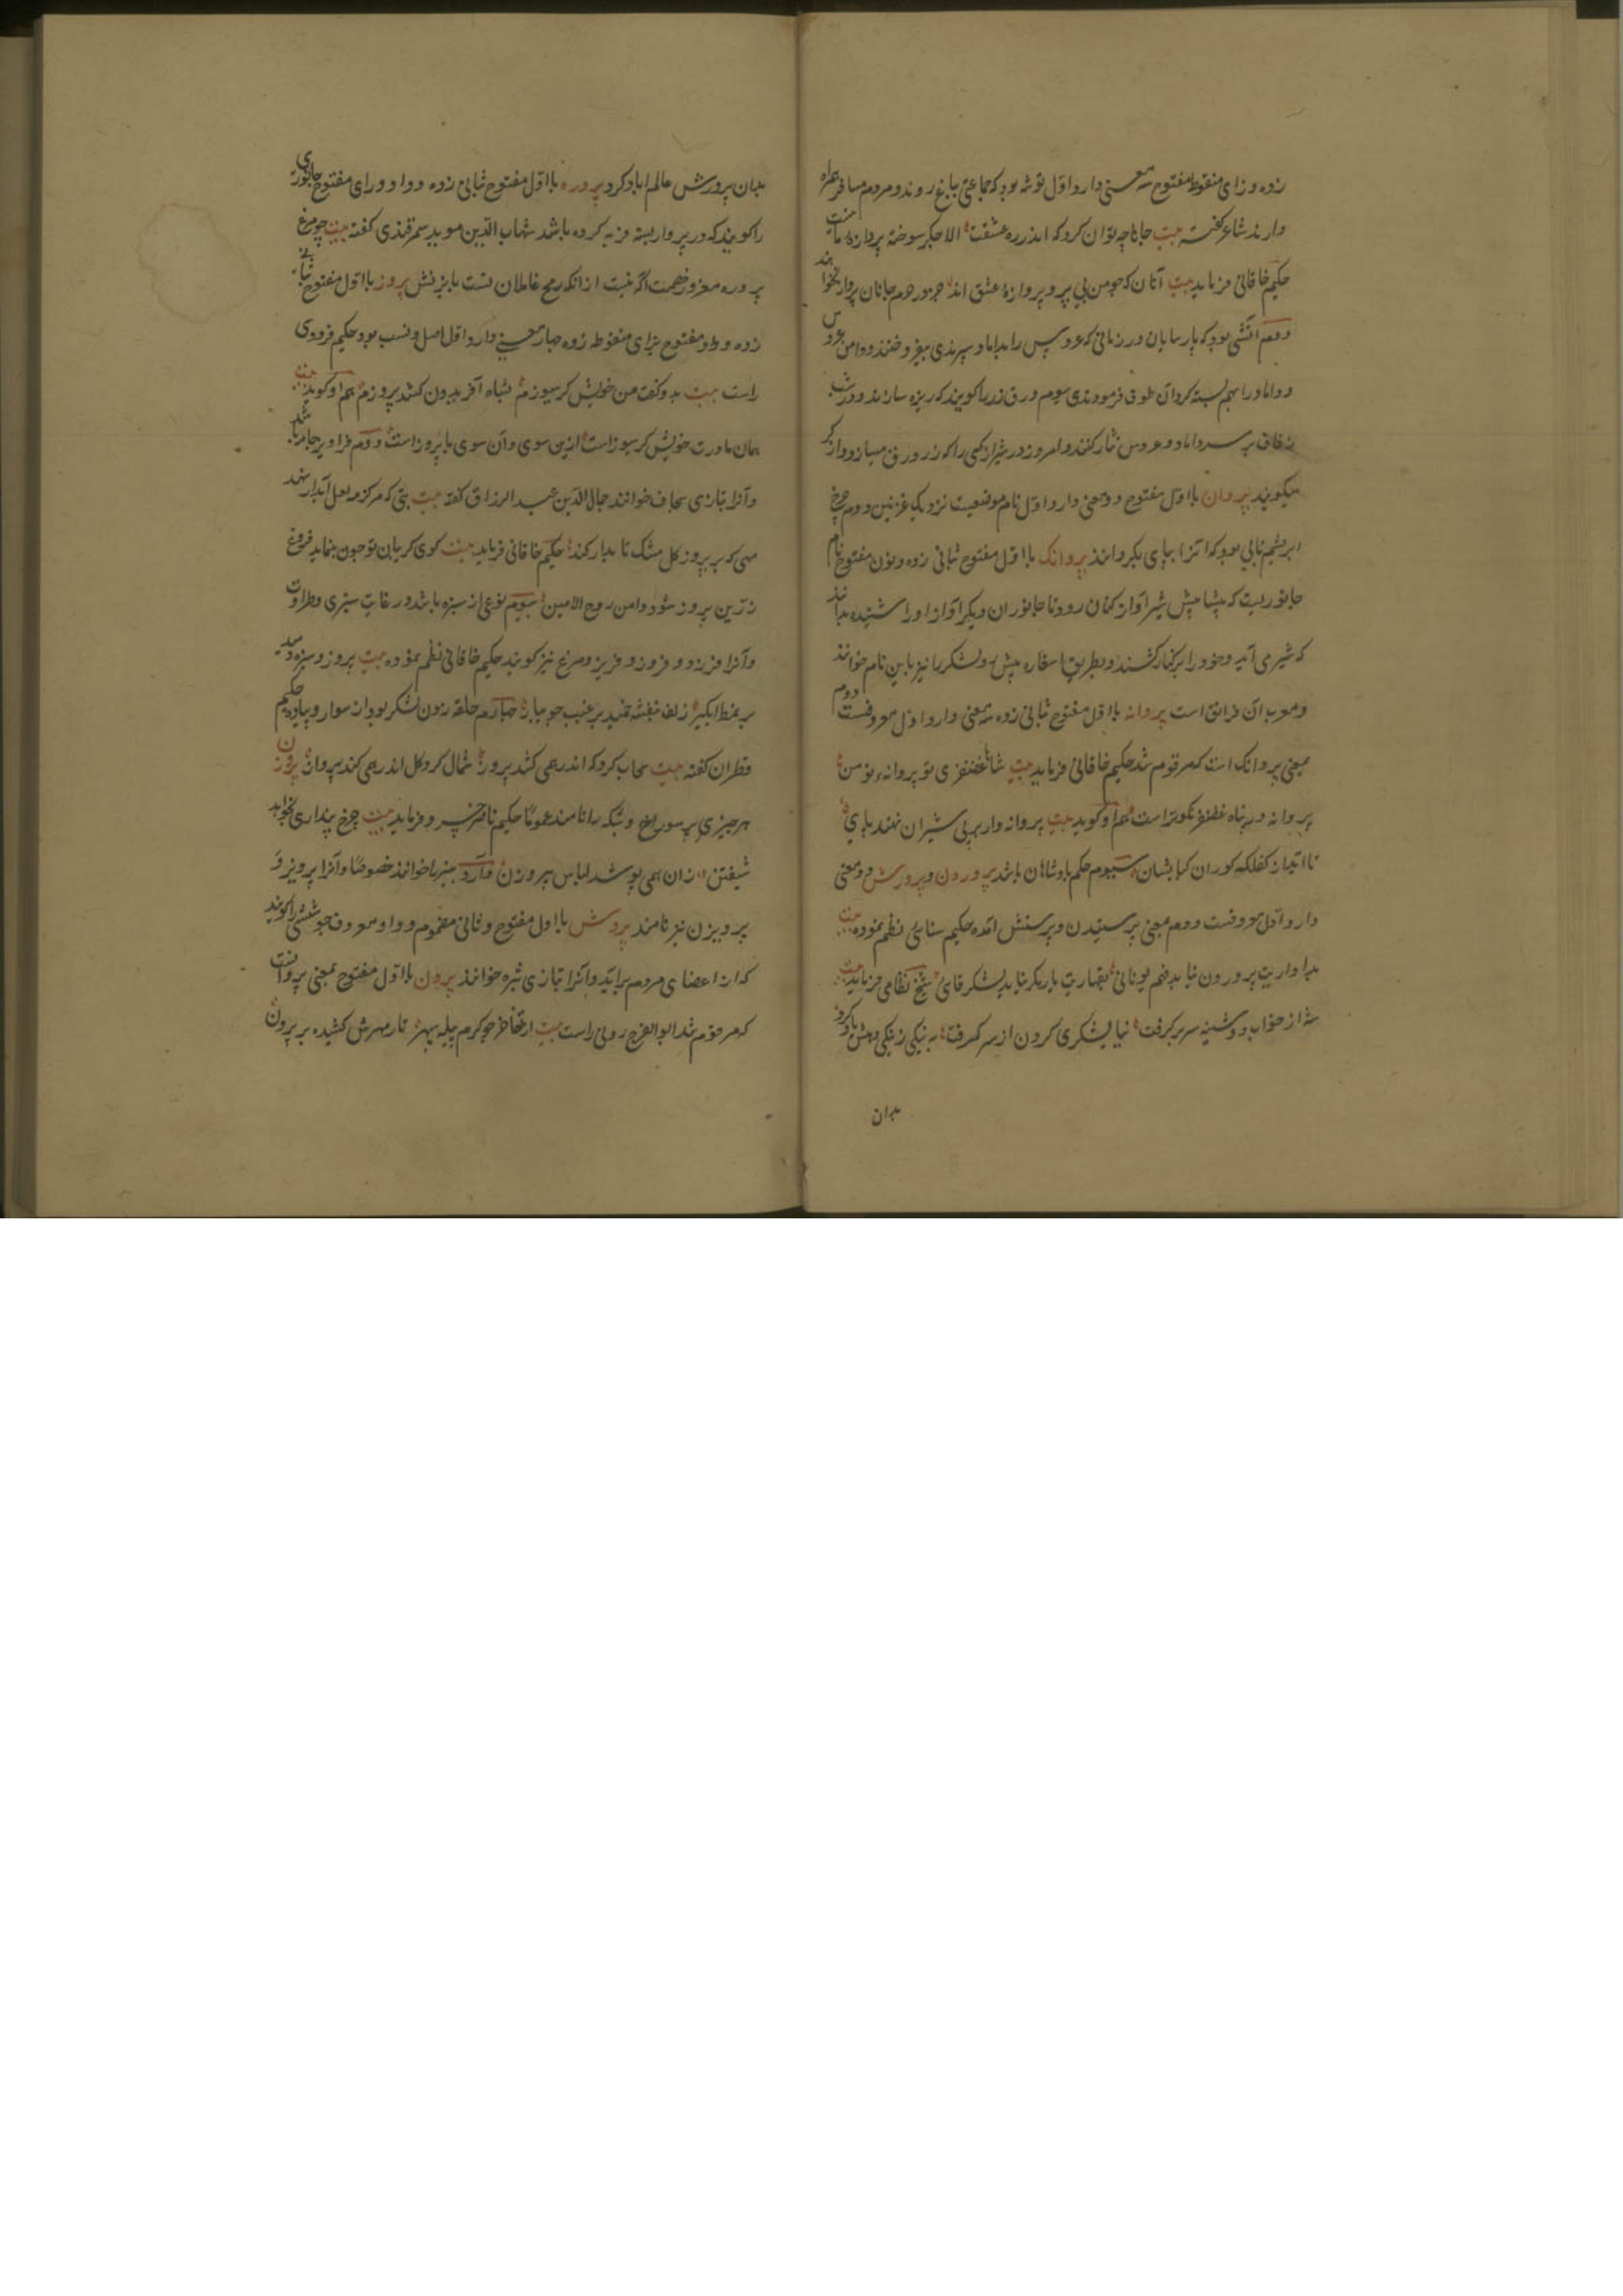 زده و زای منقوطه مفتوح سه معنی دارد اول توشه بود که جماعتی بباغ روند و مردم مسافر همراه
دارند شاعر گفته بیت جانا چه توان کرد که اندر ره عشقت الا جگر سوخته پروازهٔ ما نیست
حکیم خاقانی فرماید بیت آنان که چو من بی پر و پروازهٔ عشق اند جز در حرم جانان پرواز نخواهند
دوم آتشی بود که پارسایان در زمانی که عروس را بداماد سپرندی بیفروختند و دامن عروس
و داماد را بهم بسته گرد آن طوف فرمودندی سیوم ورق زر را گویند که ریزه سازند و در شب
زفاف بر سر داماد و عروس نثار کنند و امروز در شیراز کسی را که زرورق میسازد پروازگر
میگویند پروان با اول مفتوح دو معنی دارد اول نام موضعیست نزدیک غزنین دوم چرخ
ابریشم تابی بود که آنرا بپای بگردانند پروانک با اول مفتوح ثانی زده و نون مفتوح نام
جانوریست که پیشاپیش شیر آواز کنان رود تا جانوران دیگر آواز او را شنیده بدانند
که شیر می آید و خود را بر کنار کشند و بطریق استعاره پیش رو لشکر را نیز باین نام خوانند
و معرب آن فرانق است پروانه با اول مفتوح ثانی زده سه معنی دارد اول معروفست دوم
بمعنی پروانک است که مرقوم شد حکیم خاقانی فرماید بیت شاها غضنفری تو پروانه تو من
پروانه در پناه غضنفر نکوتر است هم او گوید بیت پروانه وار بر پی شیران نهند پای
تا آید از کفلگه گوران کبابشان سیوم حکم پادشاهان باشد پروردن و پرورش دو معنی
دارد اول معروفست دوم بمعنی پرستیدن و پرستش آمده حکیم سنائی نظم نموده بیت
شه از خواب دوشینه سر برگرفت نیایشگری کردن از سر گرفت به نیکی ز نیکی دهش یاد کرد
بدان
بدان پرورش عالم اباد کرد پروره با اول مفتوح ثانی زده و واو و رای مفتوح جانوری
را گویند که در پروار بسته فربه کرده باشد شهاب الدین موید سمرقندی گفته بیت چو مرغ
زده و واو مفتوح بزای منقوطه زده چهار معنی دارد اول اصل و نسب بود حکیم فردوسی
راست بیت بدو گفت من خویش گرسیوزم بشاه آفریدون کشد پروزم هم او گوید بیت
همان مادرت خویش گرسیوز است ازین سوی و آن سوی با پروز است دوم فراویز جامه باشد
و آنرا بتازی سجاف خوانند جمال الدین عبد الرزاق گفته بیت
حکیم خاقانی فرماید بیت گوی گریبان تو چون بنماید فروغ
زرین پروز شود دامن روح الامین سیوم نوعی از سبزه باشد در غایت سبزی و طراوت
و آنرا فرزد و فروز و فریز و مرغ نیز گویند حکیم خاقانی نظم نموده بیت پروز و سبزه دمید
بر نمط آبگیر زلف بنفشه خمید بر غبب جویبار چهارم حلقه زدن لشکر بود از سوار و پیاده حکیم
قطران گفته بیت سحاب گرد که اندر همی کشد پروز شمال گرد گل اندر همی کند پرواز پروزن
هر چیزی پر سوراخ و شبکه را نامند عموما حکیم ناصر خسرو فرماید بیت چرخ پنداری بخواهد
شیفتن زان همی پوشد لباس پروزن و آرد بیز را خوانند خصوصا و آنرا پرویز و
پرویزن نیز نامند پروش با اول مفتوح و ثانی مضموم و واو معروف جوششی را گویند
که از اعضای مردم برآید و آنرا بتازی بثره خوانند پرون با اول مفتوح بمعنی پروانست
که مرقوم شد ابو الفرج رونی راست بیت از تفاخر چو کرم پیله سپهر تار مهرش کشیده بر پرون